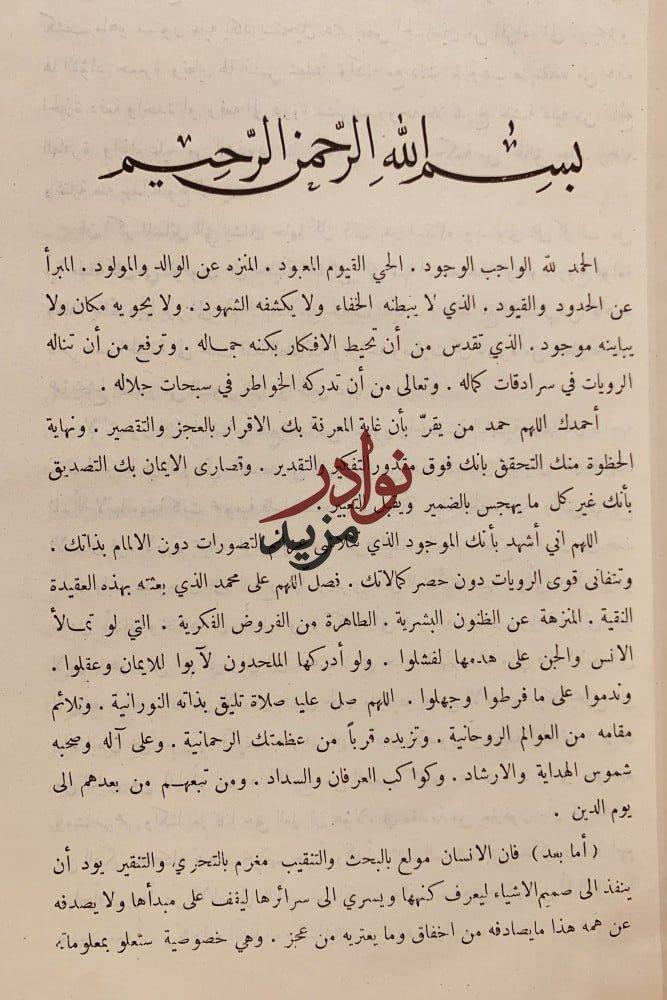 بسم الله الرحمن الرحيم
الحمد لله الواجب الوجود . الحي القيوم المعبود . المنزه عن الوالد والمولود . المبرأ
عن الحدود والقيود . الذي لا يبطنه الخفاء ولا يكشفه الشهود . ولا يحويه مكان ولا
يباينه موجود . الذي تقدس من أن تحيط الافكار بكنه جماله . وترفع من أن تناله
الرويات في سرادقات كماله . وتعالى من أن تدركه الخواطر في سبحات جلاله .
أحمدك اللهم حمد من يقرّ بأن غاية المعرفة بك الاقرار بالعجز والتقصير . ونهاية
الحظوة منك التحقق بانك فوق مقدور التفكير والتقدير . وقصارى الايمان بك التصديق
بأنك غير كل ما يهجس بالضمير ويقبل التعبير .
نوادر
مزيد
اللهم اني أشهد بأنك الموجود الذي التصورات دون الالمام بذاتك .
وتتفانى قوى الرويات دون حصر كمالاتك . فصل اللهم على محمد الذي بعثته بهذه العقيدة
النقية . المنزهة عن الظنون البشرية . الطاهرة من الفروض الفكرية . التي لو تمالأ
الانس والجن على هدمها لفشلوا . ولو أدركها الملحدون لآبوا للايمان وعقلوا .
وندموا على ما فرطوا وجهلوا . اللهم صل عليه صلاة تليق بذاته النورانية . وتلائم
مقامه من العوالم الروحانية . وتزيده قرباً من عظمتك الرحمانية . وعلى آله وصحبه
شموس الهداية والارشاد . وكواكب العرفان والسداد . ومن تبعهم من بعدهم الى
يوم الدين .
( أما بعد ) فان الانسان مولع بالبحث والتنقيب مغرم بالتحري والتنقير يود أن
ينفذ الى صميم الاشياء ليعرف كنهها ويسري الى سرائرها ليقف على مبدأها ولا يصدفه
عن همه هذا ما يصادفه من اخفاق وما يعتريه من عجز . وهي خصوصية ستعلو بمعلوماته